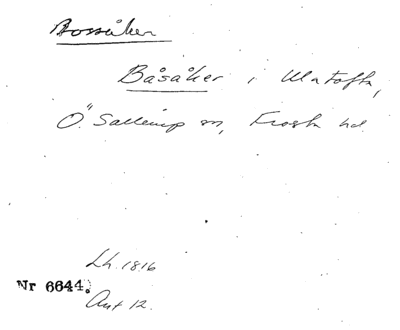 Bossåker
Båsåker i Ulatofta,
Ö. Sallerup sn, Frosta hd.
Lh. 1816
Nr 6644.
Ant 12.